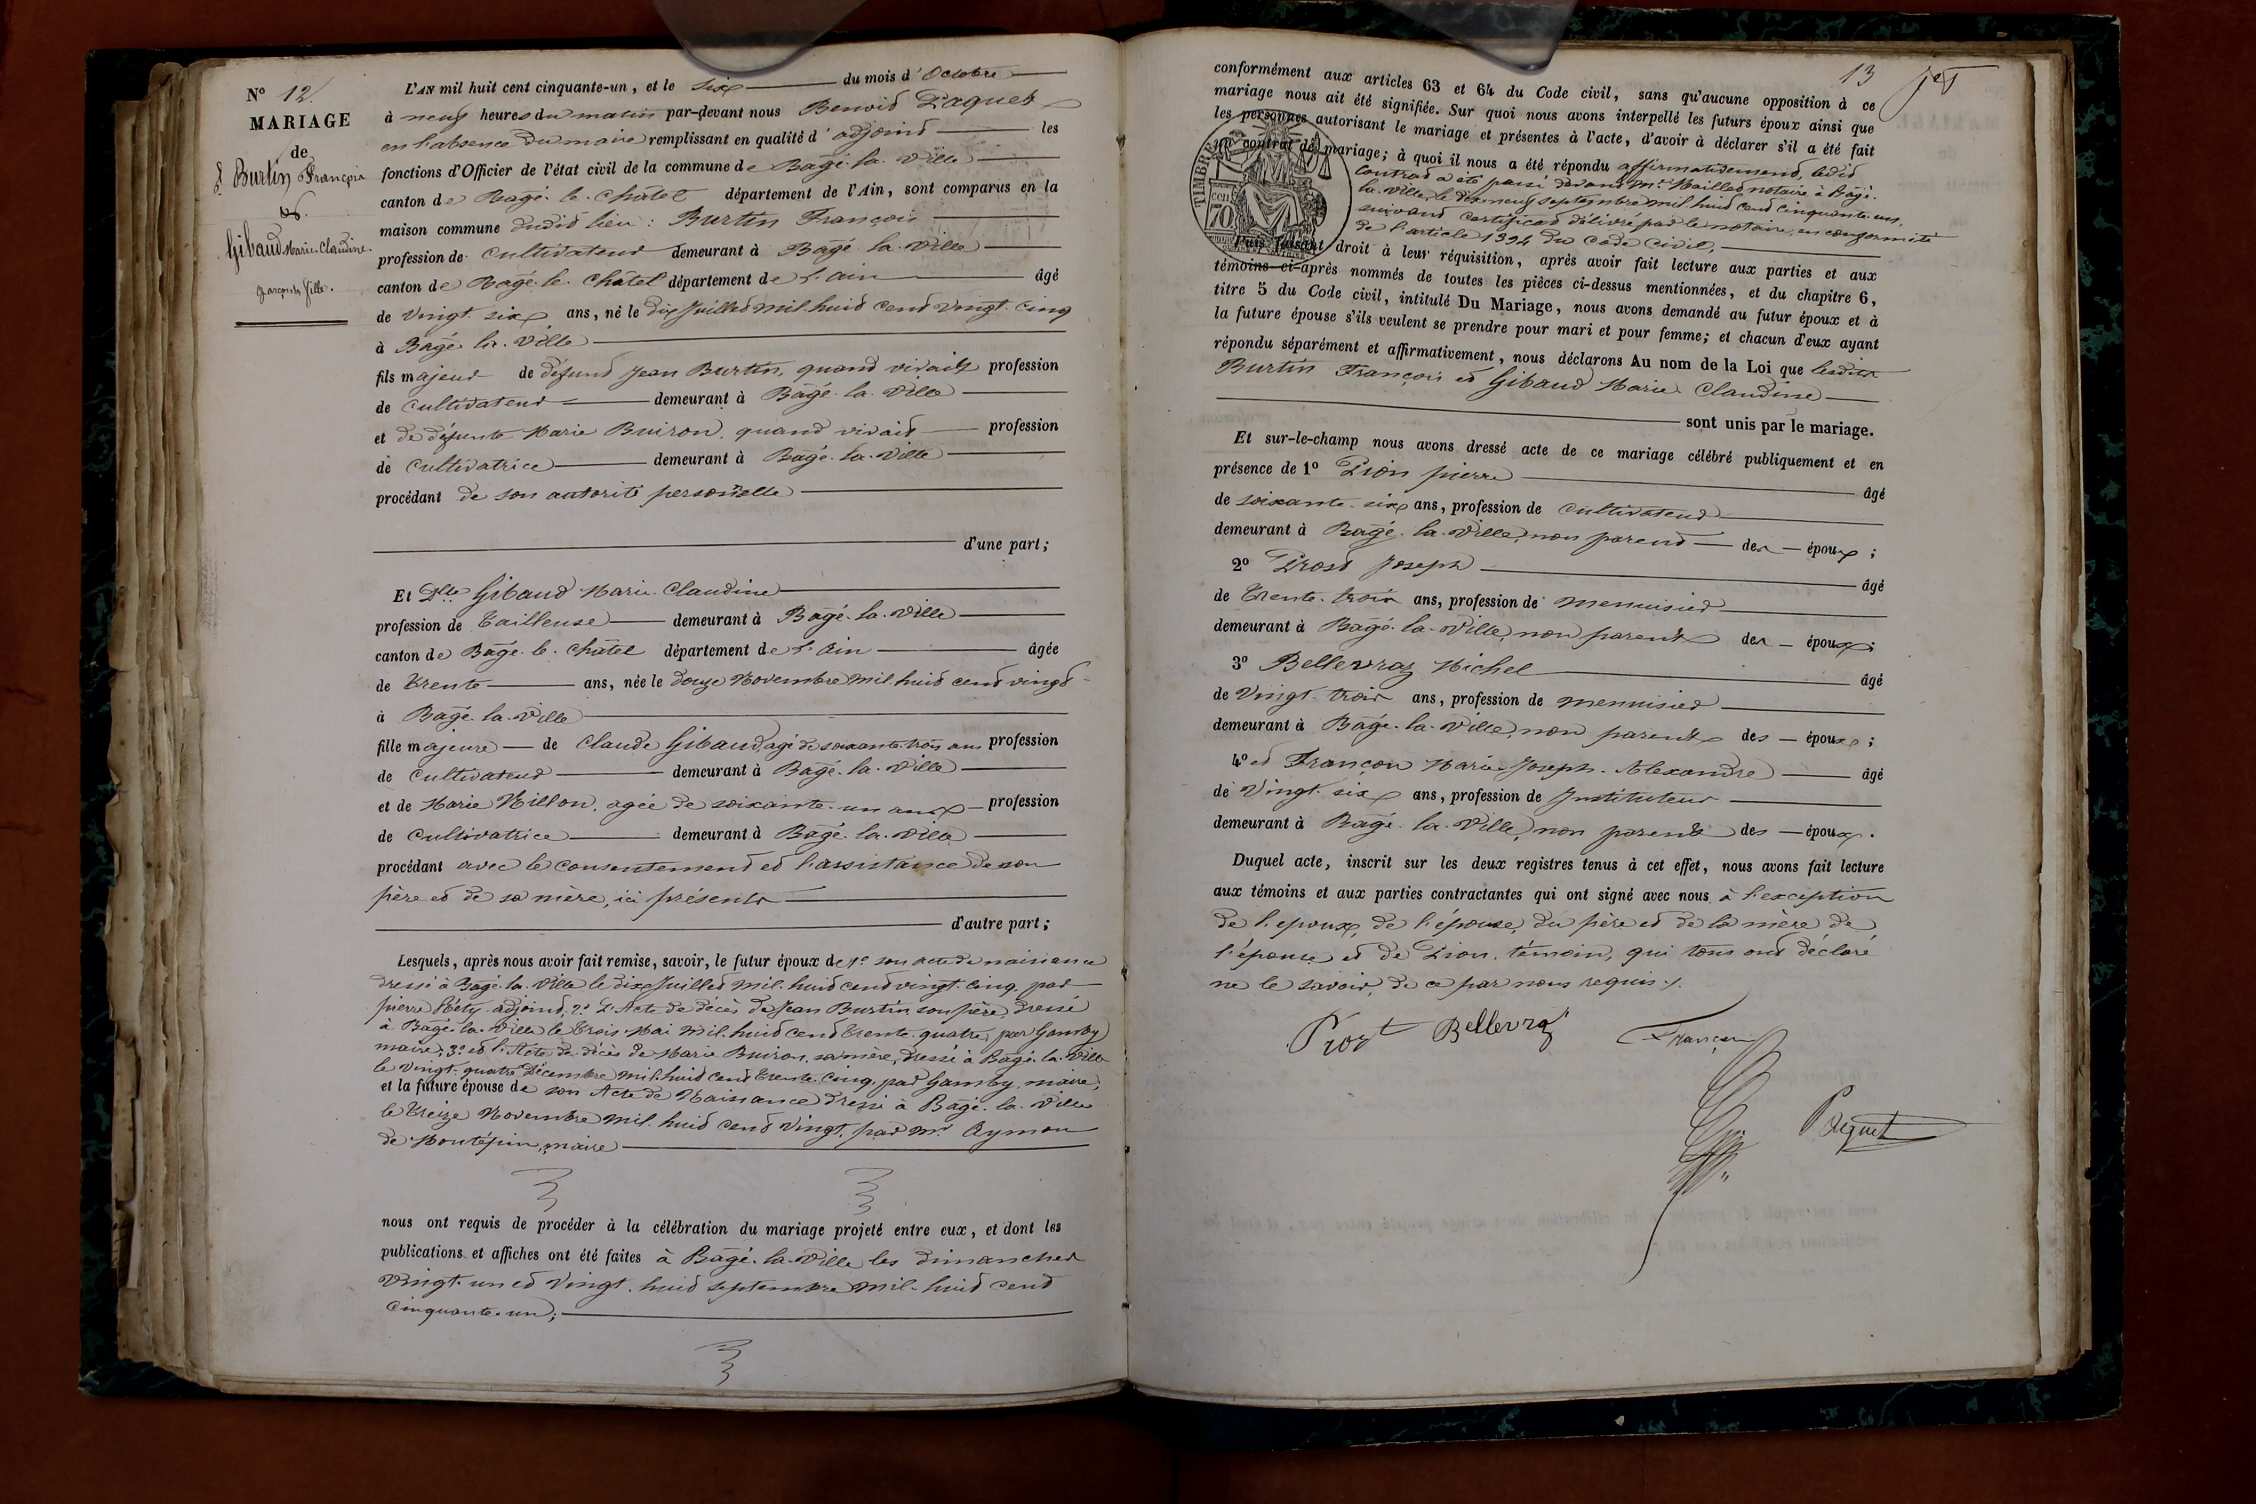 N° 12.
MARIAGE
de
Burtin François
et
Gibaud Marie-Claudine.
garçon et fille.
L'AN mil huit cent cinquante-un, et le six du mois d'Octobre
à neuf heures du matin par-devant nous Benoit Paquet
en l'absence du maire remplissant en qualité d'adjoint les
fonctions d'Officier de l'état civil de la commune de Bâgé-la-Ville
canton de Bâgé-le-Châtel département de l'Ain, sont comparus en la
maison commune dudit lieu : Burtin François
profession de cultivateur demeurant à Bâgé-la-Ville
canton de Bâgé-le-Châtel département de l'ain âgé
de vingt-six ans, né le dix Juillet mil-huit cent vingt-cinq
à Bâgé-la-Ville
fils majeur de défunt Jean Burtin, quand vivait profession
de cultivateur demeurant à Bâgé-la-Ville
et de défunte Marie Buiron, quand vivait profession
de cultivatrice demeurant à Bâgé-la-Ville
procédant de son autorité personnelle
d'une part;
Et Dlle Gibaud Marie-Claudine
profession de tailleuse demeurant à Bâgé-la-Ville
canton de Bâgé-le-Châtel département de l'ain âgée
de trente ans, née le douze Novembre mil-huit cent vingt
à Bâgé-la-Ville
fille majeure de Claude Gibaud, agé de soixante-trois ans profession
de cultivateur demeurant à Bâgé-la-Ville
et de Marie Millon, agée de soixante-un ans profession
de cultivatrice demeurant à Bâgé-la-Ville
procédant avec le consentement et l'assistance de son
père et de sa mère, ici présents
d'autre part;
Lesquels, après nous avoir fait remise, savoir, le futur époux de 1° son acte de naissance
dressé à Bâgé-la-Ville le dix Juillet mil-huit cent vingt-cinq, par
pierre Réty adjoint, 2° L'Acte de décès de Jean Burtin son père, dressé
à Bâgé-la-Ville le trois Mai mil-huit cent trente-quatre, par Gamby
maire; 3° et l'Acte de décès de Marie Buiron, sa mère, dressé à Bâgé-la-Ville
le vingt-quatre Décembre mil-huit cent trente-cinq, par Gamby, maire;
et la future épouse de son Acte de Naissance dressé à Bâgé-la-Ville
le treize Novembre mil-huit cent vingt, par Mr Aymon
de Montépin, maire
nous ont requis de procéder à la célébration du mariage projeté entre eux, et dont les
publications et affiches ont été faites à Bâgé-la-Ville les dimanches
vingt-un et vingt-huit septembre mil-huit cent
cinquante-un;
13
conformément aux articles 63 et 64 du Code civil, sans qu'aucune opposition à ce
mariage nous ait été signifiée. Sur quoi nous avons interpellé les futurs époux ainsi que
les personnes autorisant le mariage et présentes à l'acte, d'avoir à déclarer s'il a été fait
un contrat de mariage; à quoi il nous a été répondu affirmativement, ledit
contrat a été passé devant Mr Maillet notaire à Bâgé-
la-Ville, le dix-neuf septembre mil-huit cent cinquante-un,
suivant certificat délivré par le notaire, en conformité
de l'article 1394 du Code Civil,
TIMBRE
70
Puis faisant droit à leur réquisition, après avoir fait lecture aux parties et aux
témoins ci-après nommés de toutes les pièces ci-dessus mentionnées, et du chapitre 6,
titre 5 du Code civil, intitulé Du Mariage, nous avons demandé au futur époux et à
la future épouse s'ils veulent se prendre pour mari et pour femme; et chacun d'eux ayant
répondu séparément et affirmativement, nous déclarons Au nom de la Loi que lesdits
Burtin François et Gibaud Marie-Claudine
sont unis par le mariage.
Et sur-le-champ nous avons dressé acte de ce mariage célébré publiquement et en
présence de 1° Pion pierre âgé
de soixante-six ans, profession de cultivateur
demeurant à Bâgé-la-Ville, non parent des époux;
2° Prost Joseph âgé
de trente-trois ans, profession de menuisier
demeurant à Bâgé-la-Ville, non parent des époux;
3° Bellevraz Michel âgé
de vingt-trois ans, profession de menuisier
demeurant à Bâgé-la-Ville, non parent des époux;
4° et Françon Marie-Joseph-Alexandre âgé
de vingt-six ans, profession de Instituteur
demeurant à Bâgé-la-Ville, non parent des époux.
Duquel acte, inscrit sur les deux registres tenus à cet effet, nous avons fait lecture
aux témoins et aux parties contractantes qui ont signé avec nous à l'exception
de l'époux, de l'épouse, du père et de la mère de
l'épouse et de Pion, témoin, qui tous ont déclaré
ne le savoir, de ce par nous requis.
Prost Bellevraz Françon
Paquet